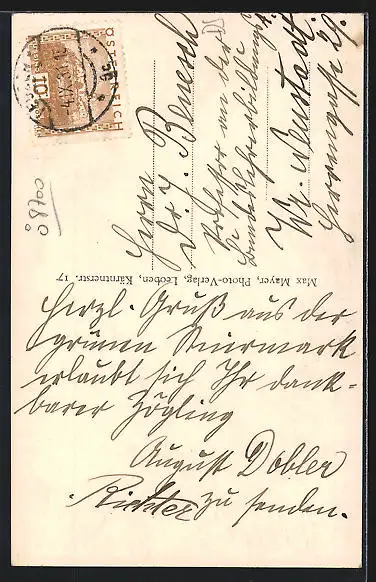 ÖSTERREICH
10
00780
Herrn
Dr. J. Benesch
Professor an der
Bundeslehrerbildungs
Wr. Neustadt.
Herrengasse 29.
Max Mayer, Photo-Verlag, Leoben, Kärntnerstr. 17
Herzl. Gruß aus der
grünen Steiermark
erlaubt sich Ihr dank-
barer Zögling
August Dobler
Richter zu senden.